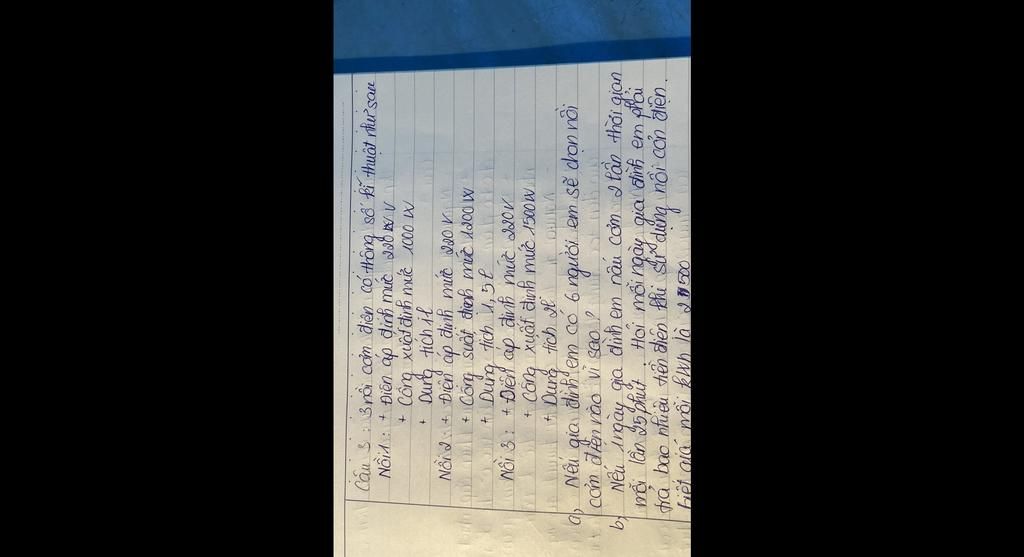 Câu 3: 3 nồi cơm điện có thông số kĩ thuật như sau
Nồi 1: + Điện áp định mức 220 V
+ Công xuất định mức 1000 W
+ Dung tích 1l
Nồi 2: + Điện áp định mức 220 V
+ Công suất định mức 1200 W
+ Dung tích 1,5l
Nồi 3: + Điện áp định mức 220V
+ Công xuất định mức 1500W
+ Dung tích 2l
a, Nếu gia đình em có 6 người em sẽ chọn nồi
cơm điện nào vì sao?
b, Nếu 1 ngày gia đình em nấu cơm 2 lần thời gian
mỗi lần 25 phút. Hỏi mỗi ngày gia đình em phải
trả bao nhiêu tiền điện khi sử dụng nồi cơn điện.
biết giá mỗi kWh là 2500